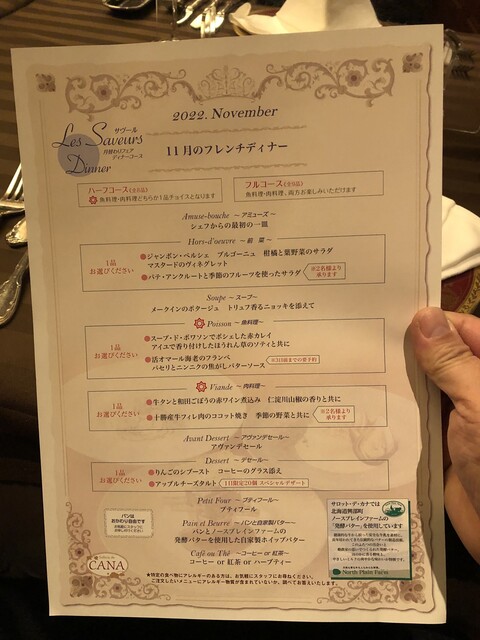 2022. November
Les Saveurs
サヴール
月替わりフェア
ディナーコース
Dinner
11月のフレンチディナー
ハーフコース(全8品)
魚料理・肉料理どちらか1品チョイスとなります
フルコース(全9品)
魚料理・肉料理、両方お楽しみいただけます
Amuse-bouche ～アミューズ～
シェフからの最初の一皿
Hors-d'oeuvre ～前 菜～
1品
お選びください
●ジャンボン・ペルシェ ブルゴーニュ 柑橘と葉野菜のサラダ
マスタードのヴィネグレット
●パテ・アンクルートと季節のフルーツを使ったサラダ
※2名様より
承ります
Soupe ～スープ～
メークインのポタージュ トリュフ香るニョッキを添えて
Poisson ～魚料理～
1品
お選びください
●スープ・ド・ポワソンでポシェした赤カレイ
アイユで香り付けしたほうれん草のソティと共に
●活オマール海老のフランベ
パセリとニンニクの焦がしバターソース
※3日前までの要予約
Viande ～肉料理～
1品
お選びください
●牛タンと和田ごぼうの赤ワイン煮込み 仁淀川山椒の香りと共に
●十勝産牛フィレ肉のココット焼き 季節の野菜と共に
※2名様より
承ります
Avant Dessert ～アヴァンデセール～
アヴァンデセール
Dessert ～デセール～
1品
お選びください
●りんごのシブースト コーヒーのグラス添え
●アップルチーズタルト
1日限定20個 スペシャルデザート
Petit Four ～プティフール～
プティフール
パンは
おかわり自由です
Pain et Beurre ～パンと自家製バター～
パンとノースプレインファームの
発酵バターを使用した自家製ホイップバター
Café ou Thé ～コーヒー or 紅茶～
コーヒー or 紅茶 or ハーブティー
CANA
サロット・デ・カナでは
北海道興部町
ノースプレインファームの
「発酵バター」を使用しています
North Plain Farm
★特定の食べ物にアレルギーのある方は、お気軽にスタッフにお尋ねください。
ご注文したいメニューにアレルギー物質が含まれていないか、調べてお答えいたします。